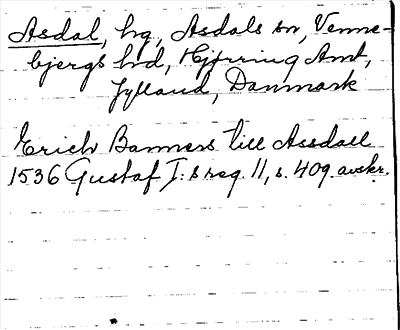 Asdal, hg, Asdals sn, Venne-
bjergs hd, Hjørring Amt,
Jylland, Danmark
Erich Banners till Assdall
1536 Gustaf I:s reg. 11, s. 409 avskr.